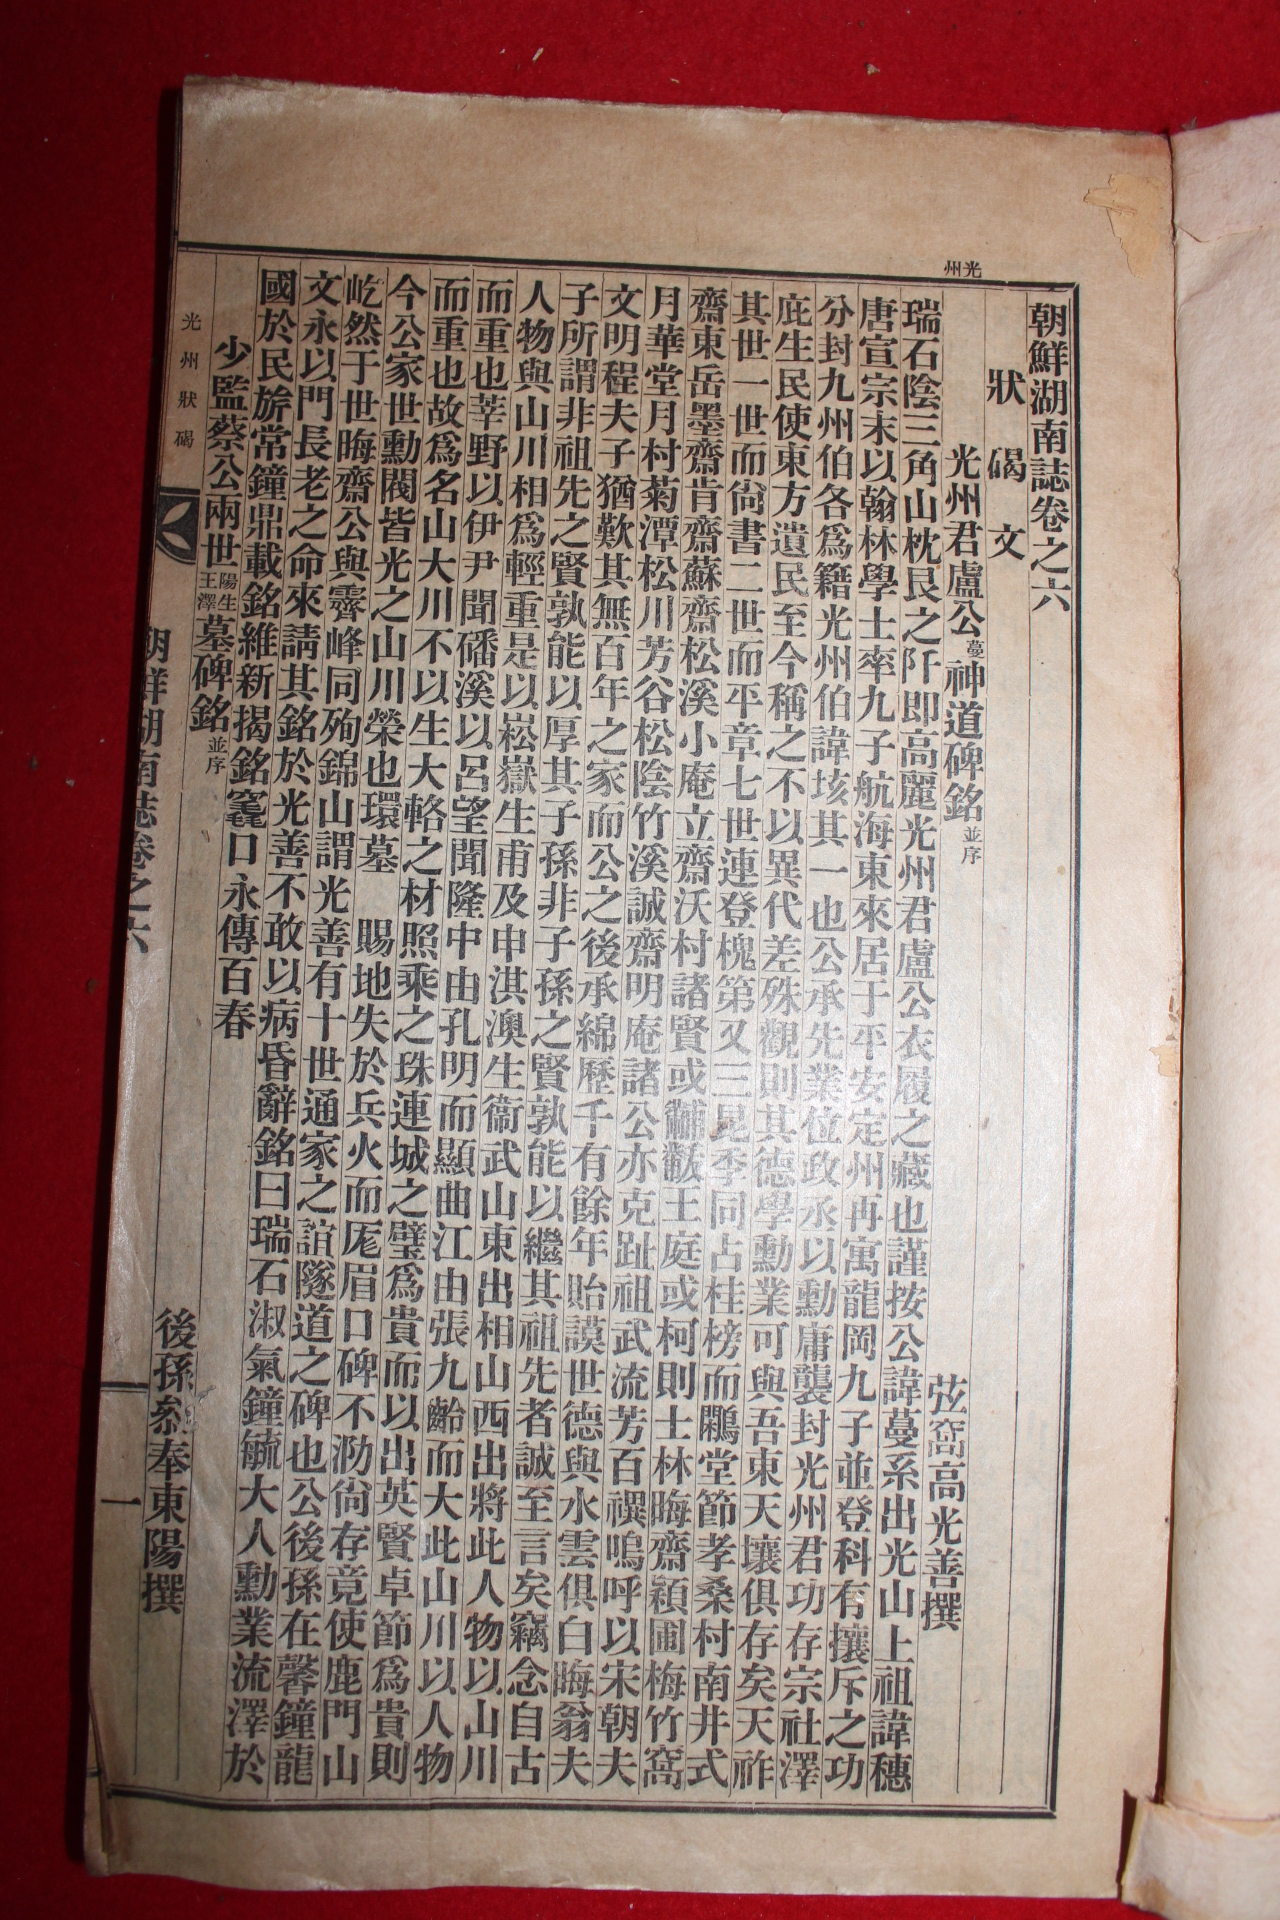 光州
朝鮮湖南誌卷之六
狀碣文
光州君盧公蔓神道碑銘並序
弦窩高光善撰
瑞石陰三角山枕艮之阡即高麗光州君盧公衣履之藏也謹按公諱蔓系出光山上祖諱穗
唐宣宗末以翰林學士率九子航海東來居于平安定州再寓龍岡九子並登科有攘斥之功
分封九州伯各爲籍光州伯諱垓其一也公承先業位政丞以勳庸襲封光州君功存宗社澤
庇生民使東方遺民至今稱之不以異代差殊觀則其德學勳業可與吾東天壤俱存矣天祚
其世一世而尙書二世而平章七世連登槐第又三昆季同占桂榜而鷳堂節孝桑村南井式
齋東岳墨齋肯齋蘇齋松溪小庵立齋沃村諸賢或黼黻王庭或柯則士林晦齋穎圃梅竹窩
月華堂月村菊潭松川芳谷松陰竹溪誠齋明庵諸公亦克趾祖武流芳百禩嗚呼以宋朝夫
文明程夫子猶歎其無百年之家而公之後承綿歷千有餘年貽謨世德與水雲俱白晦翁夫
子所謂非祖先之賢孰能以厚其子孫非子孫之賢孰能以繼其祖先者誠至言矣竊念自古
人物與山川相爲輕重是以崧嶽生甫及申淇澳生衞武山東出相山西出將此人物以山川
而重也莘野以伊尹聞磻溪以呂望聞隆中由孔明而顯曲江由張九齡而大此山川以人物
而重也故爲名山大川不以生大輅之材照乘之珠連城之璧爲貴而以出英賢卓節爲貴則
今公家世勳閥皆光之山川榮也環墓 賜地失於兵火而厖眉口碑不泐尙存竟使鹿門山
屹然于世晦齋公與霽峰同殉錦山謂光善有十世通家之誼隧道之碑也公後孫在馨鐘龍
文永以門長老之命來請其銘於光善不敢以病昏辭銘曰瑞石淑氣鐘毓大人勳業流澤於
國於民旂常鐘鼎載銘維新揭銘窀口永傳百春
少監蔡公兩世陽生王澤墓碑銘並序
後孫奉東陽撰
光州狀碣
朝鮮湖南誌卷之六
一